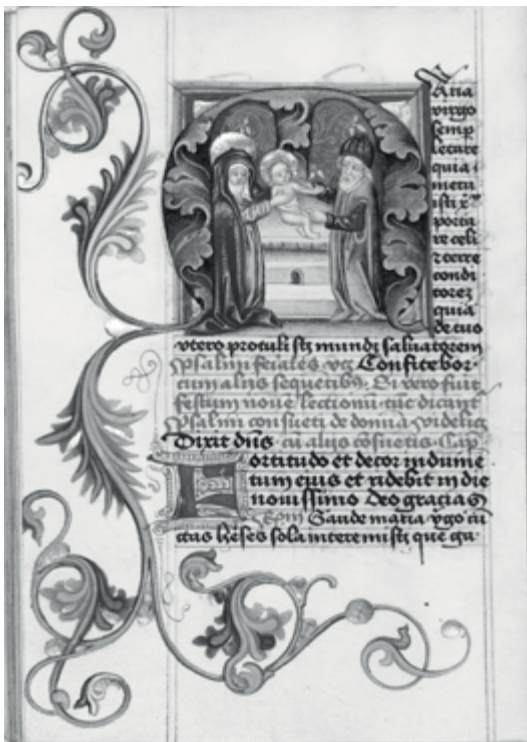 Aria
virgo
semp
letare
quia
meru
isti xp̄
porta
re celi
⁊ terre
condi
torez
quia
de tuo
vtero protulisti mundi saluatorem
psalmi feriales vtz Confitebor·
cum aliis sequētibꝫ. Si vero fuit
festum noue lectionū tūc dicant
psalmi consueti de domīa videlicz
Dixit dn̄s cū aliis cōsuetis. Cap
Fortitudo et decor indume
tum eius et ridebit in die
nouissimo Deo gracias
Gaude maria v̄go cū
ctas hēses sola interemisti que ga